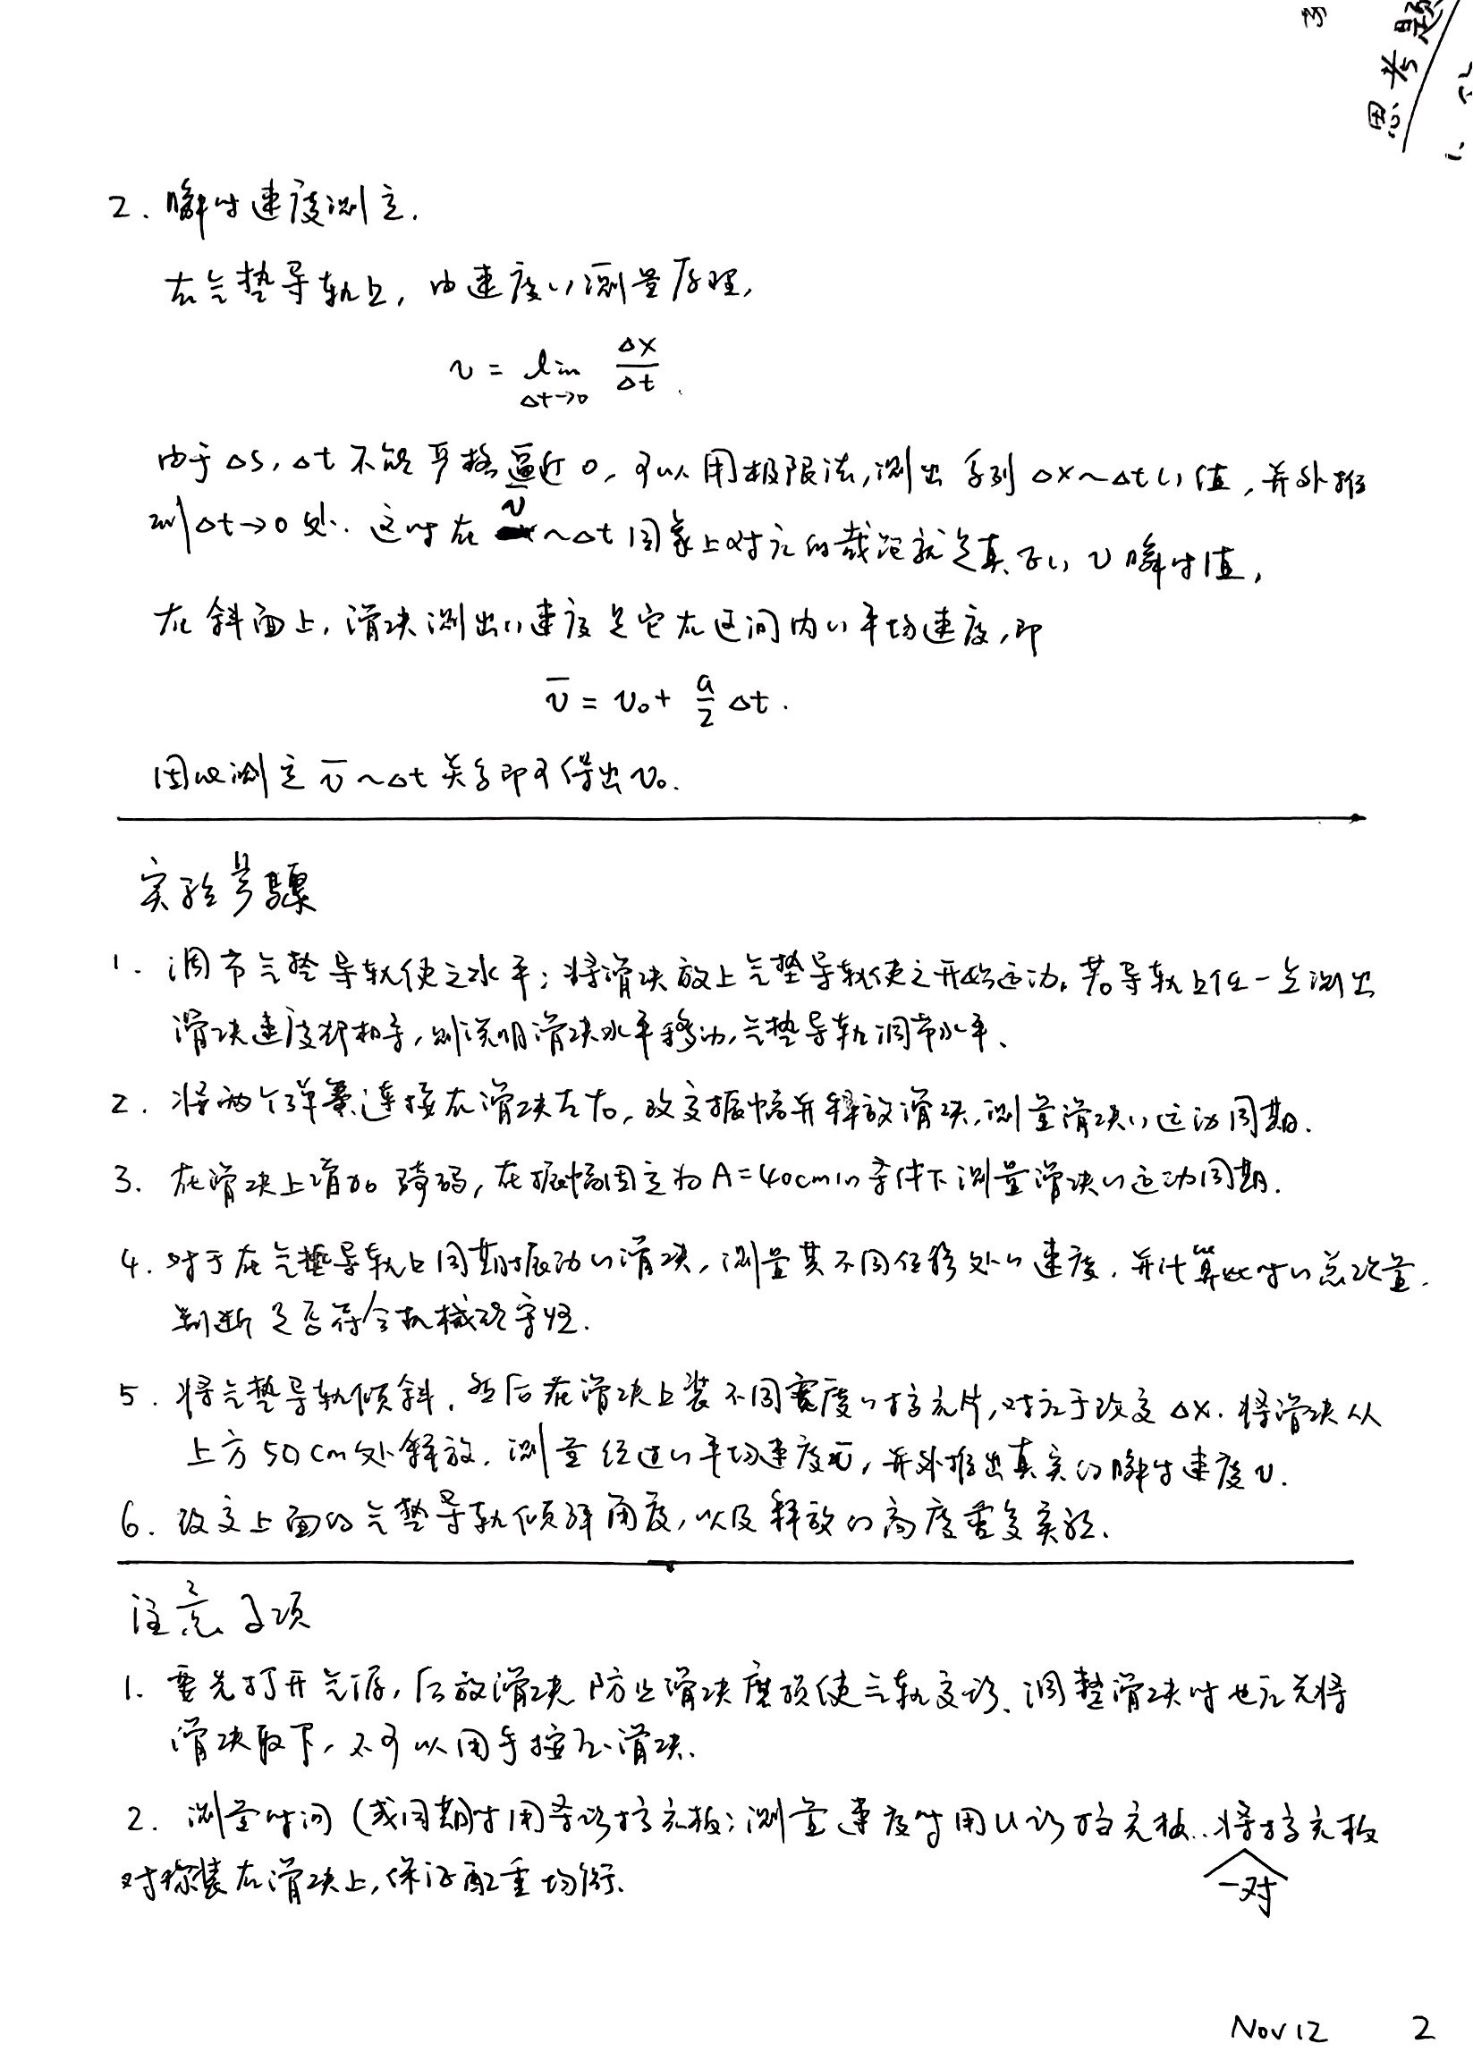 思考题
1、
2. 瞬时速度测定.
在气垫导轨上, 由速度的测量原理,
v = lim Δx/Δt
Δt→0
由于Δs, Δt不能严格逼近0, 可以用极限法, 测出系列Δx~Δt的值, 并外推
到Δt→0处. 这时在v̄~Δt图象上对应的截距就是真正的v瞬时值,
在斜面上, 滑块测出的速度是它在区间内的平均速度, 即
v̄ = v₀ + a/2 Δt.
因此测定v̄~Δt关系即可得出v₀.
实验步骤
1. 调节气垫导轨使之水平; 将滑块放上气垫导轨使之开始运动, 若导轨上任一点测出
滑块速度都相等, 则说明滑块水平移动, 气垫导轨调节水平.
2. 将两个弹簧连接在滑块左右, 改变振幅并释放滑块, 测量滑块的运动周期.
3. 在滑块上增加骑码, 在振幅固定为A=40cm的条件下测量滑块的运动周期.
4. 对于在气垫导轨上周期振动的滑块, 测量其不同位移处的速度, 并计算此时的总能量.
判断是否符合机械能守恒.
5. 将气垫导轨倾斜, 然后在滑块上装不同宽度的挡光片, 对应于改变Δx. 将滑块从
上方50cm处释放, 测量经过的平均速度v̄, 并外推出真实的瞬时速度v.
6. 改变上面的气垫导轨倾斜角度, 以及释放的高度重复实验.
注意事项
1. 要先打开气源, 后放滑块, 防止滑块磨损使气轨变形、调整滑块时也应先将
滑块取下, 不可以用手按压滑块.
2. 测量时间 (或周期时用条形挡光板; 测量速度时用U形挡光板. 将挡光板
一对
对称装在滑块上, 保证配重均衡.
Nov 12 2